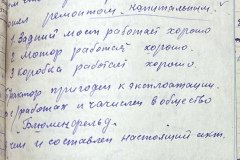 ремонтом капитальным.
Задний мост работает хорошо
2 мотор работает хорошо.
3 коробка работает хорошо
Трактор пригоден к эксплоатации.
работах и зачислен в общество
Блюменфельд.
и составлен настоящий акт.